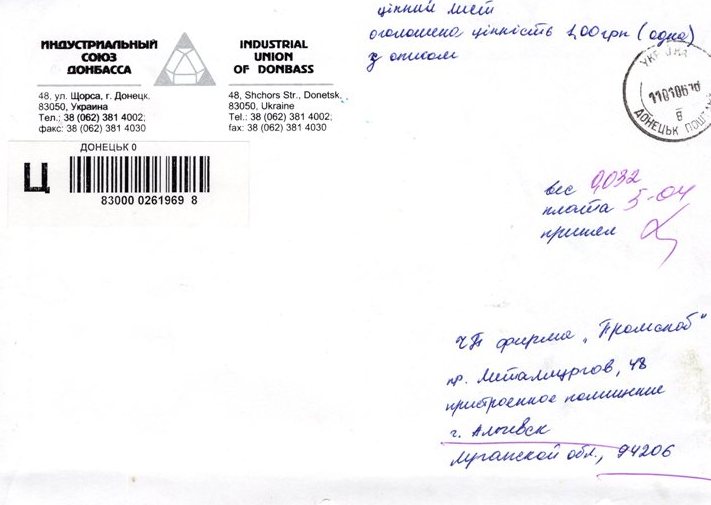 цінний лист
оголошена цінність 1,00грн (одна)
з описом
ИНДУСТРИАЛЬНЫЙ
СОЮЗ
ДОНБАССА
INDUSTRIAL
UNION
OF DONBASS
48, ул. Щорса, г. Донецк,
83050, Украина
Тел.: 38 (062) 381 4002;
факс: 38 (062) 381 4030
48, Shchors Str., Donetsk,
83050, Ukraine
Tel.: 38 (062) 381 4002;
fax: 38 (062) 381 4030
УКРАЇНА
110106
8
ДОНЕЦЬК ПОШТАМТ
ДОНЕЦЬК 0
Ц
83000 0261969 8
вес 0,032
плата 5-04
принял
ЧП фирма „Промснаб"
пр. Металлургов, 48
пристроенное помещение
г. Алчевск
Луганской обл., 94206